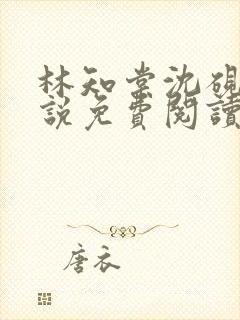 林知棠沈硯
說免費閱讀
唐衣